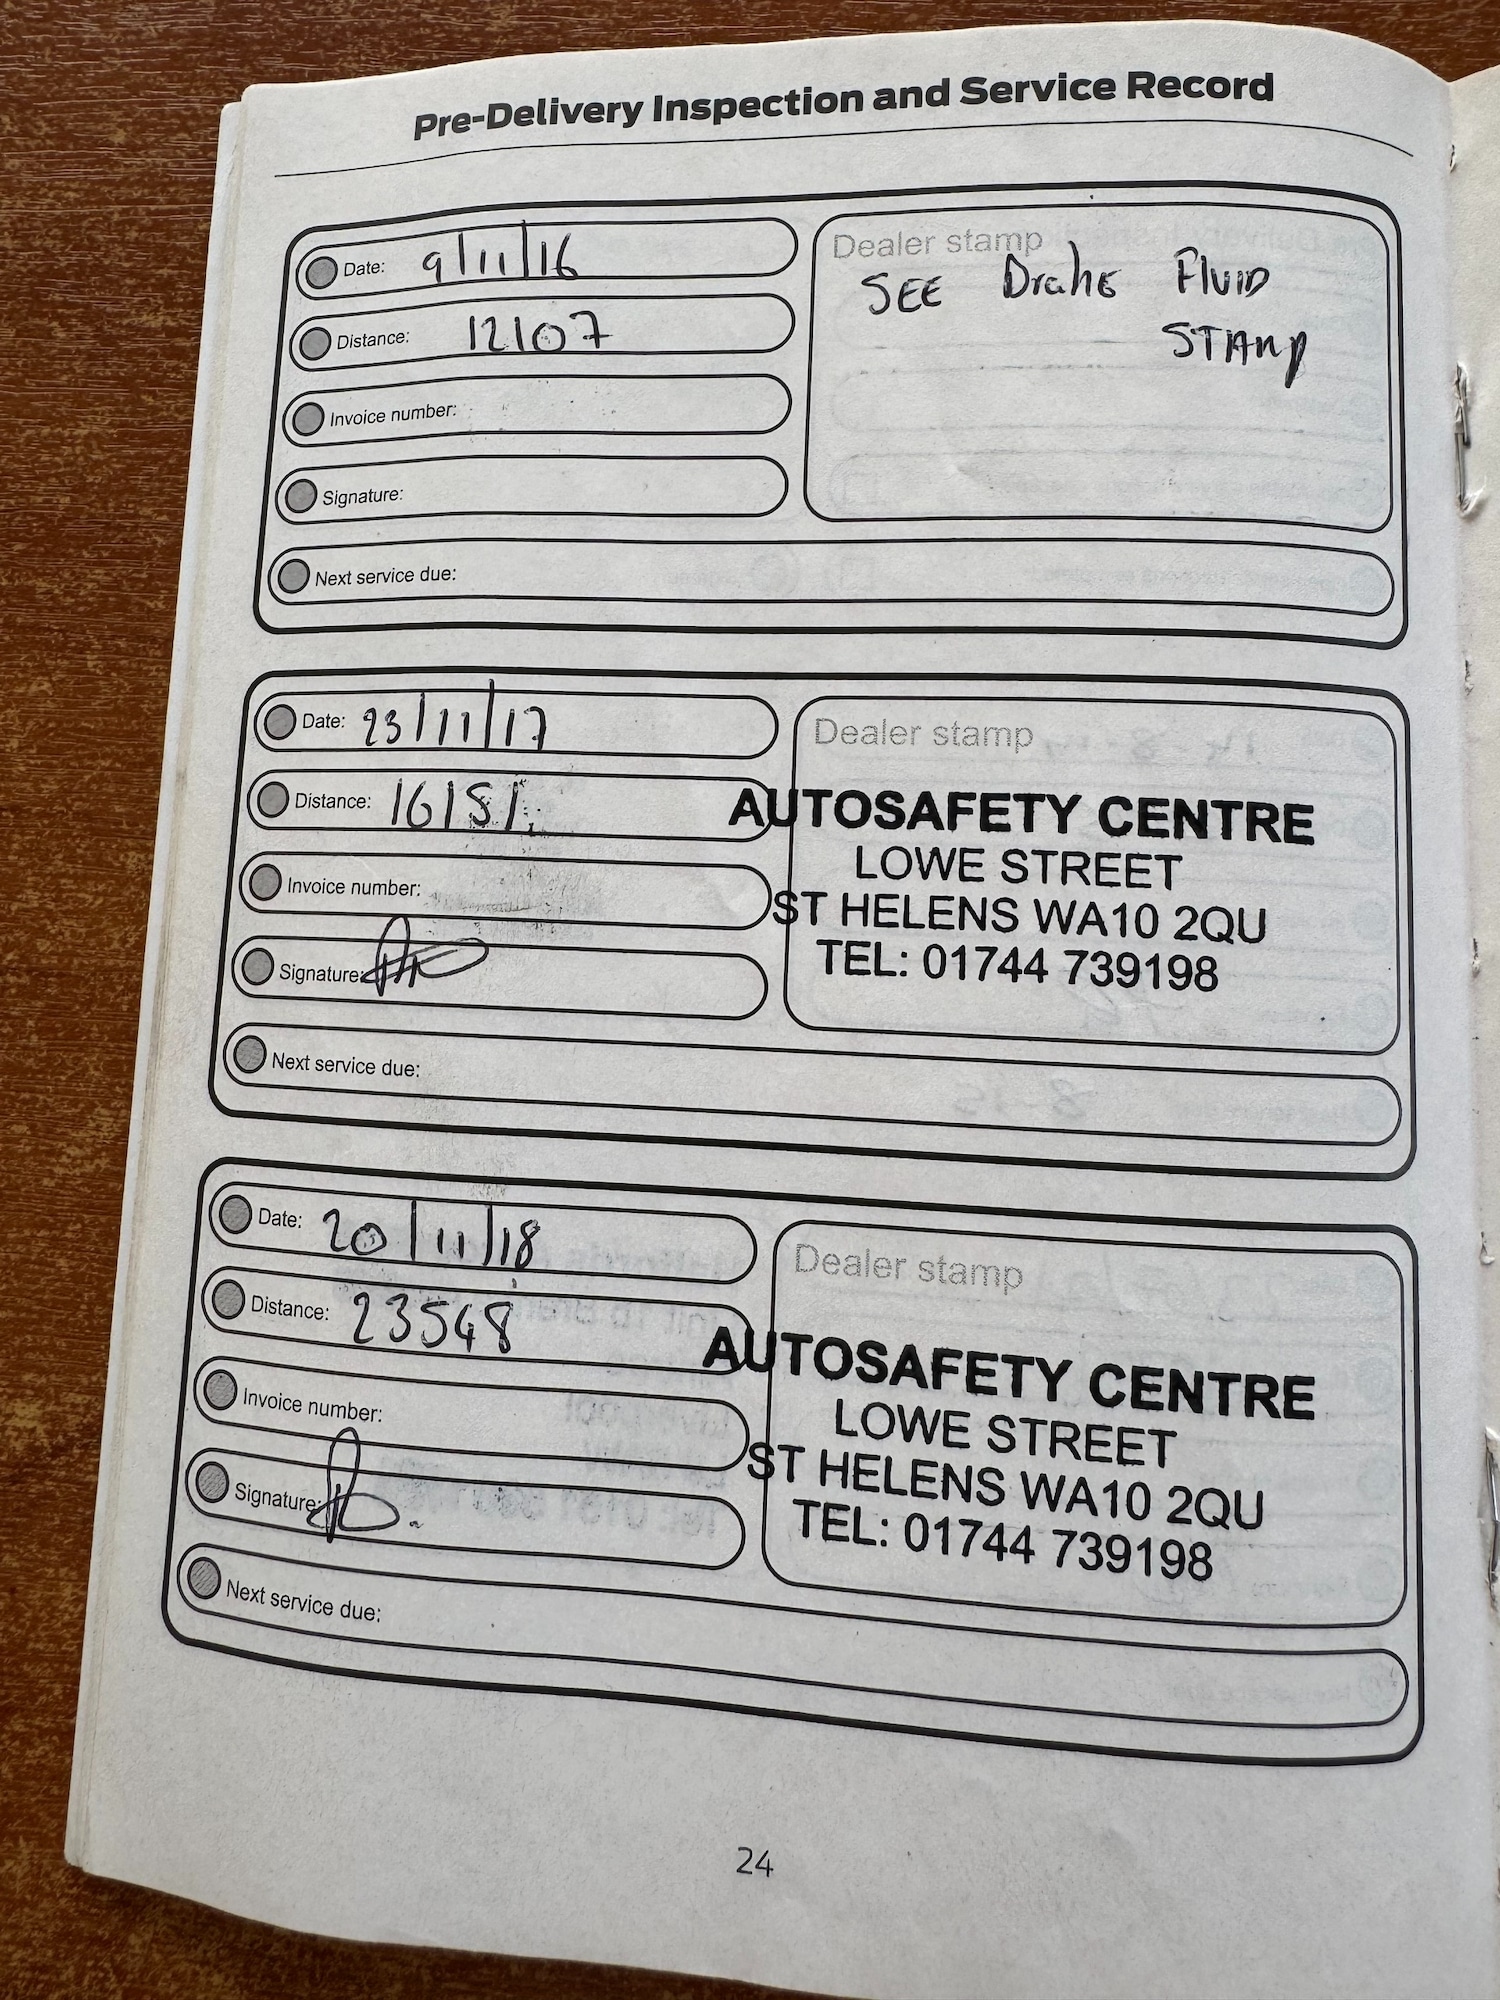 Pre-Delivery Inspection and Service Record
Date: 9/11/16
Distance: 12107
Invoice number:
Signature:
Next service due:
Dealer stamp
SEE Brake Fluid
STAMP
Date: 23/11/17
Distance: 16151
Invoice number:
Signature:
Next service due:
Dealer stamp
AUTOSAFETY CENTRE
LOWE STREET
ST HELENS WA10 2QU
TEL: 01744 739198
Date: 20/11/18
Distance: 23548
Invoice number:
Signature:
Next service due:
Dealer stamp
AUTOSAFETY CENTRE
LOWE STREET
ST HELENS WA10 2QU
TEL: 01744 739198
24